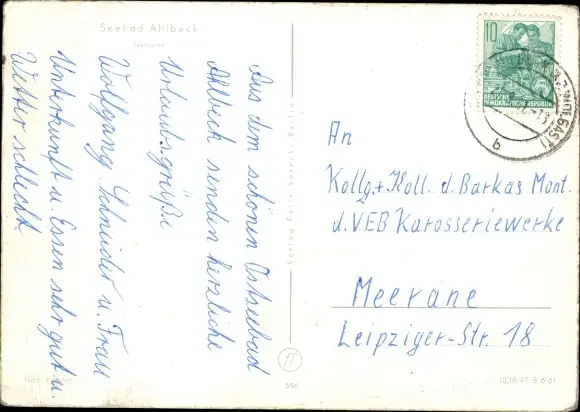 Seebad Ahlbeck
Aus dem schönen Ostseebad
Ahlbeck senden herzliche
Urlaubsgrüße
Wolfgang Schneider u. Frau
Unterkunft u. Essen sehr gut u.
Wetter schlecht
10
DEUTSCHE
DEMOKRATISCHE REPUBLIK
b
An
Kollg. + Koll. d. Barkas Mont.
d. VEB Karosseriewerke
Meerane
Leipziger-Str. 18
556
III/18/97 B 6 61